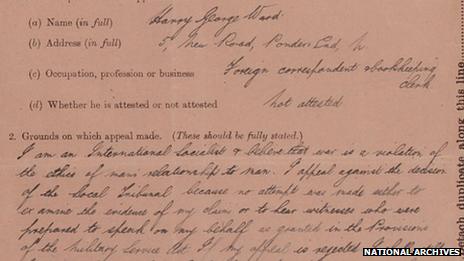 (a) Name (in full) Harry George Ward.
(b) Address (in full) 5, New Road, Ponders End, N.
(c) Occupation, profession or business Foreign correspondent & bookkeeping
clerk
(d) Whether he is attested or not attested not attested
2. Grounds on which appeal made. (These should be fully stated.)
I am an International Socialist & believe that war is a violation of
the ethics of mans relationship to man. I appeal against the decision
of the Local Tribunal because no attempt was made either to
examine the evidence of my claim or to hear witnesses who were
prepared to speak on my behalf as granted in the Provisions
of the Military Service Act. If my appeal is rejected I shall still
detach duplicate along this line
NATIONAL ARCHIVES